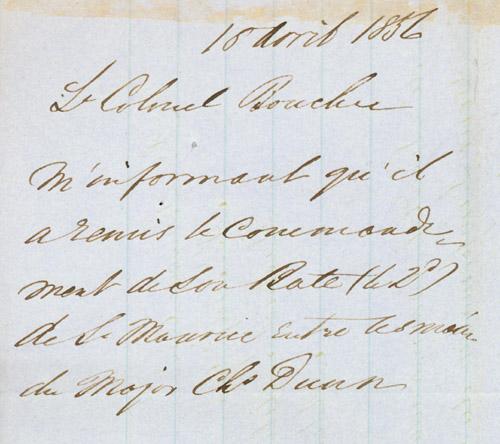 18 avril 1856
Lt Colonel Boucher
M'informant qu'il
a remis le Commande-
ment de son Bate (le 2d)
de St Maurice entre les mains
du Major Chs Dunn